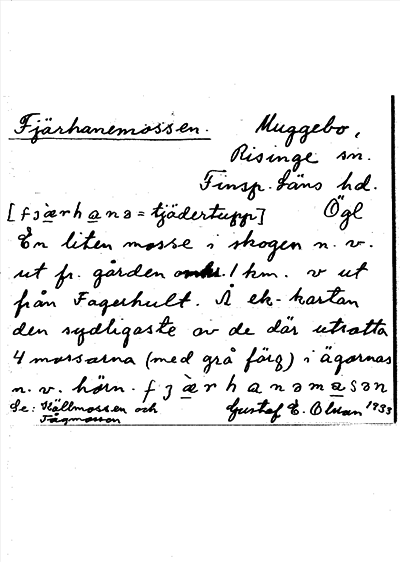 Fjärhanemossen. Muggebo,
Risinge sn.
Finsp. Läns hd.
[fɜærhanə = tjädertupp] Ögl
En liten mosse i skogen n. v.
ut fr. gården omkr. 1 km. v ut
från Fagerhult. Å ek-kartan
den sydligaste av de där utsatta
4 mossarna (med grå färg) i ägornas
n. v. hörn. fɜærhanəmasən
Se: Källmossen och Gustaf E. Olsson 1933
Tågmossen